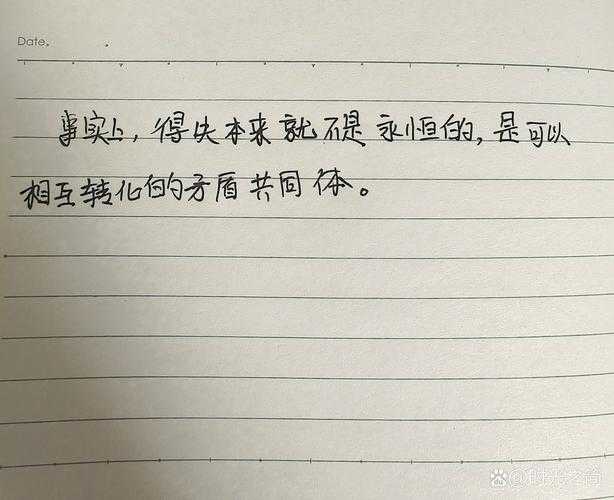 Date.
事实上，得失本来就不是永恒的，是可以
相互转化的矛盾共同体。